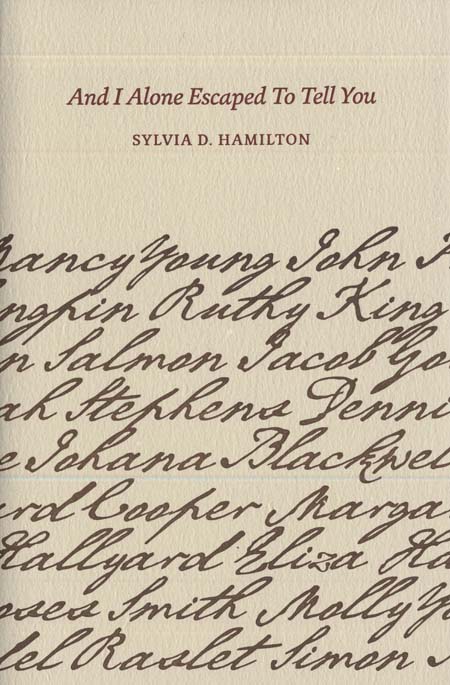 And I Alone Escaped To Tell You
SYLVIA D. HAMILTON
Nancy Young John
ngfin Ruthy King
n Salmon Jacob Go
ah Stephens Denni
e Johana Blackwel
ard Cooper Marga
Hallyard Eliza Ha
oses Smith Molly Yo
el Raslet Simon